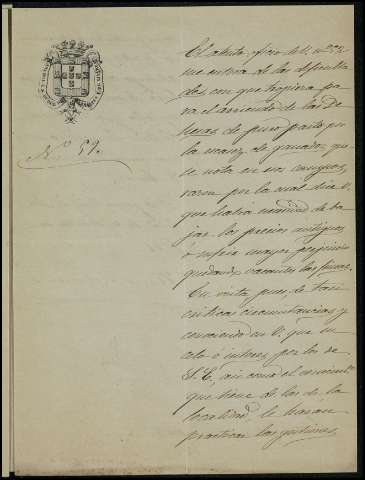 Nº 59.
El atento, favor de V.
me entera de las dificulta
des, con que tropieza pa
ra el arriendo de las De
hesas de puro pasto, por
la escasez de ganado, que
se nota en esa comarca,
razon por la cual dice V.
que habrá necesidad de ba
jar los precios antiguos
ó sufrir mayor perjuicio
quedando vacantes las fincas.
En vista, pues, de tan
críticas circunstancias y
conociendo en V. que su
celo é interes, por los de
S. E., asi como el
que tiene de los de la
localidad, le haran
practicar las gestiones,